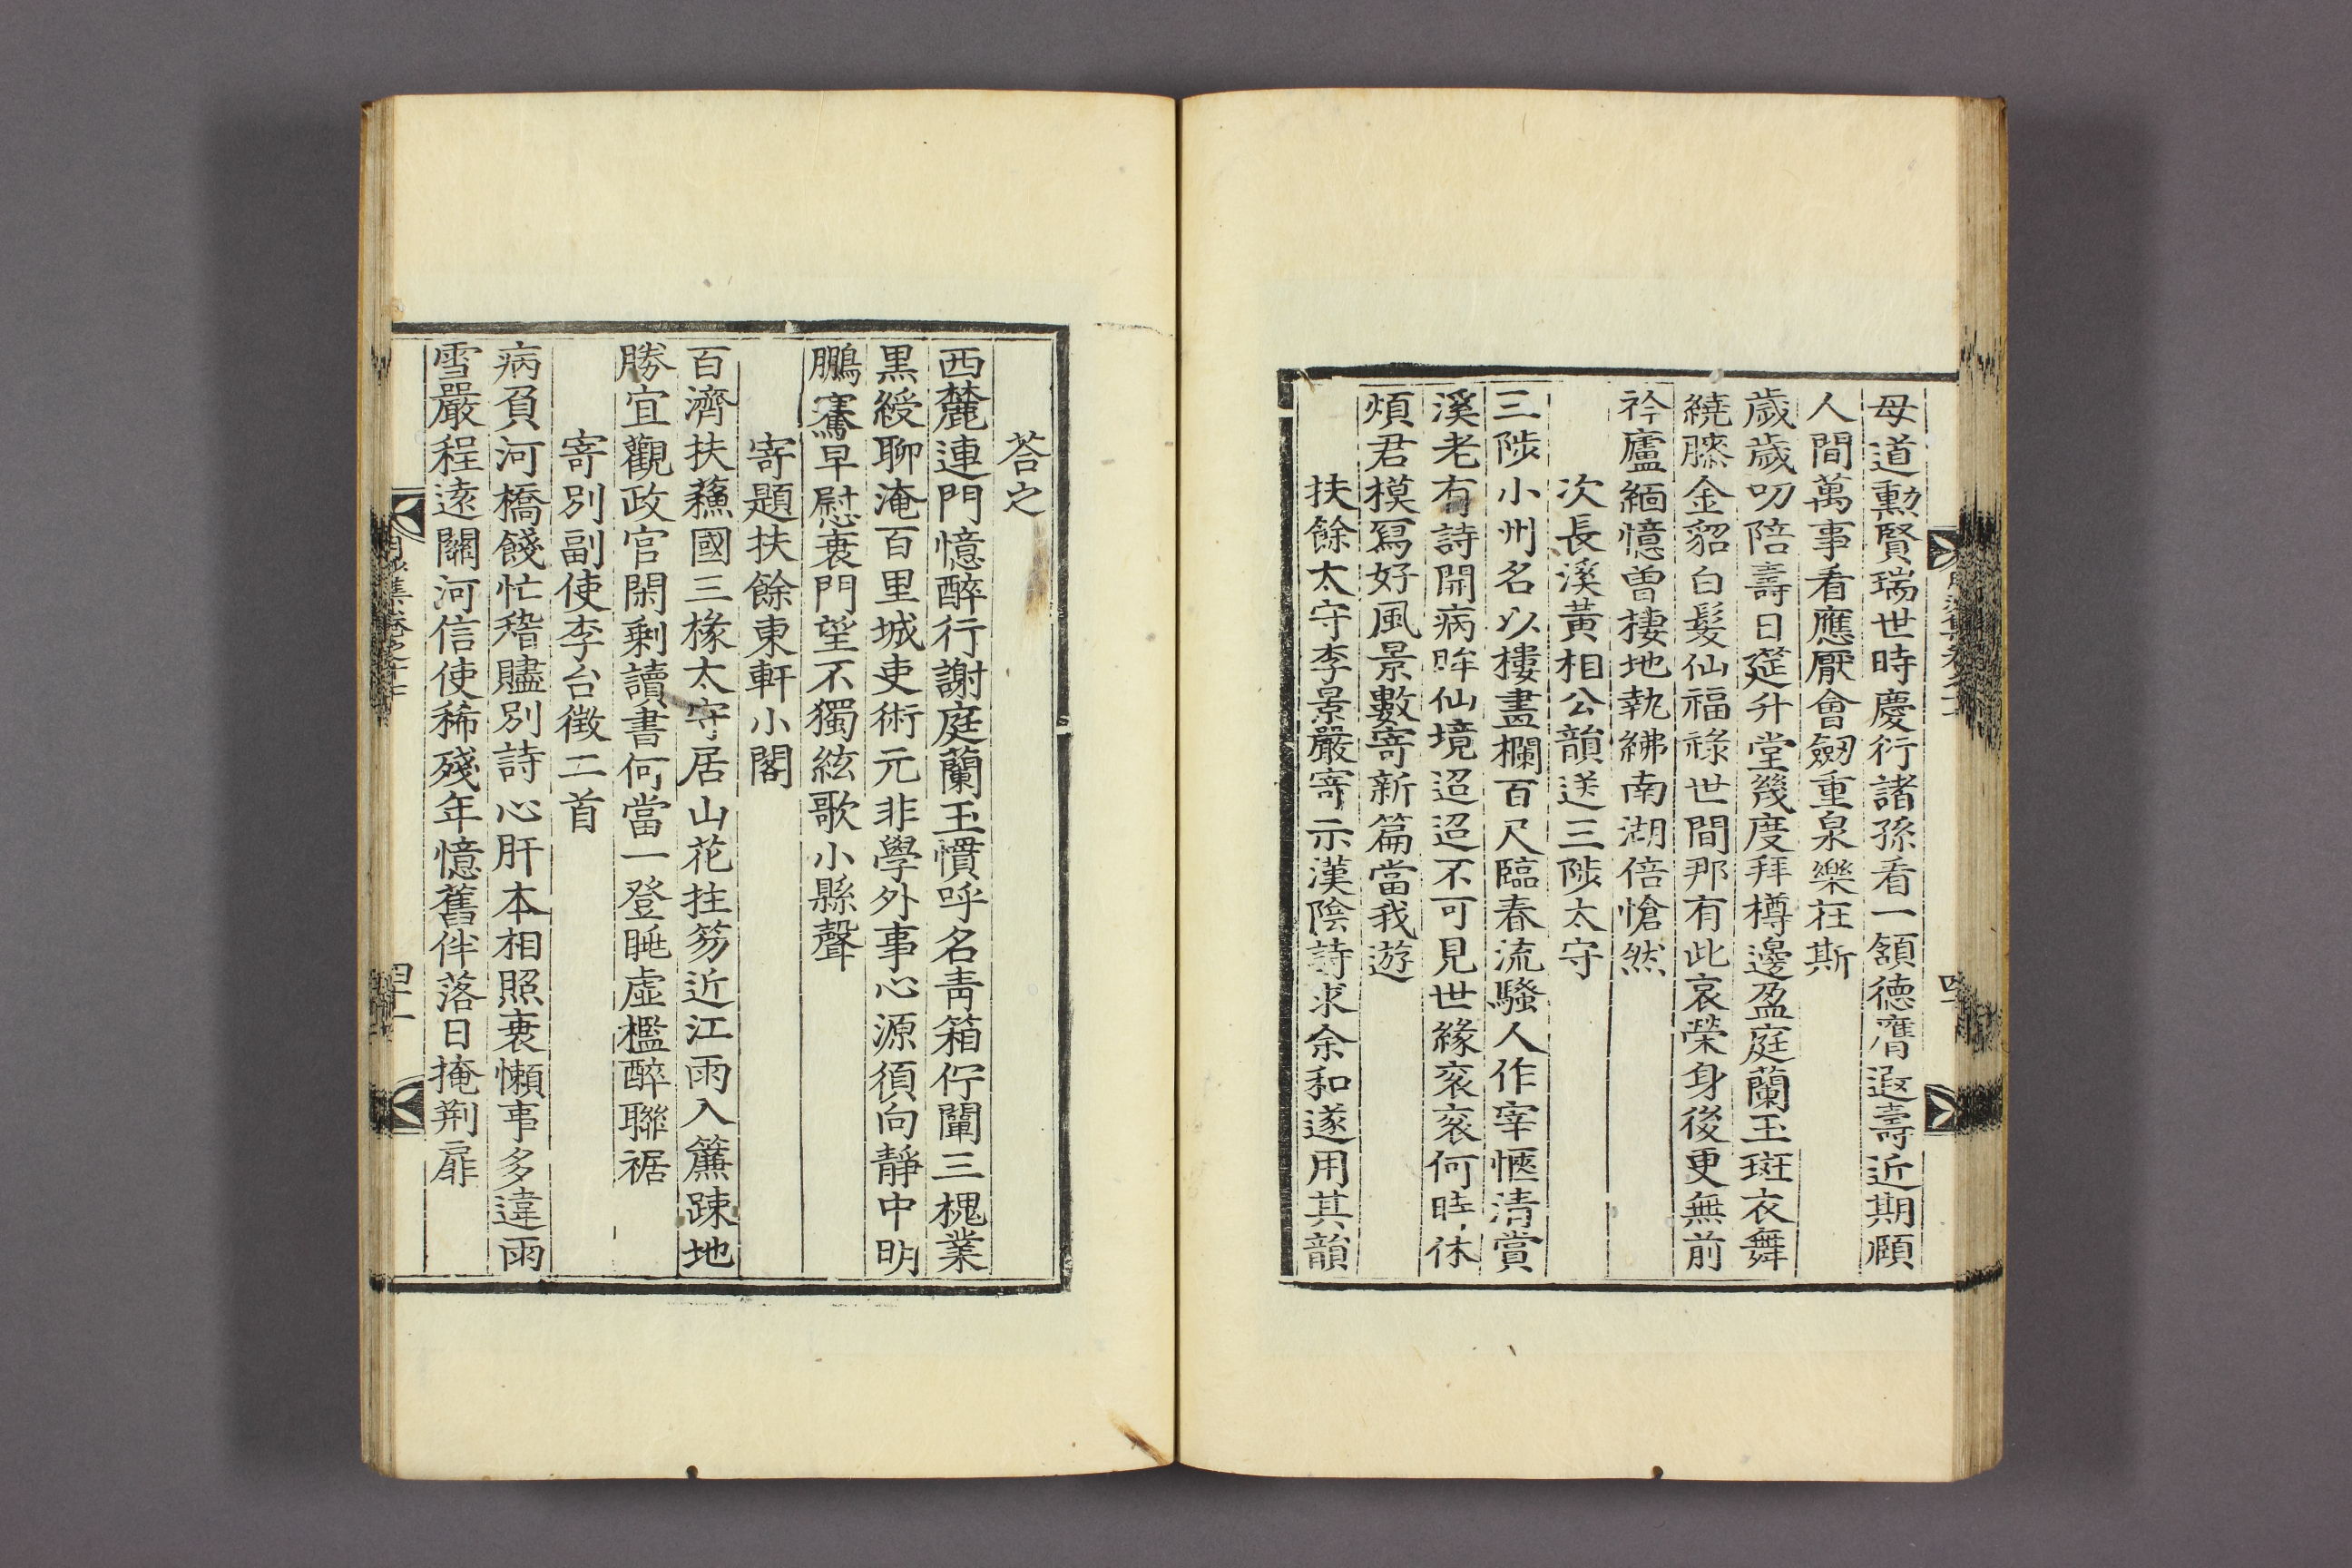 母道勳賢瑞世時慶行諸孫看一領德膺遐壽近期頤
人間萬事看應厭會劒重泉樂在斯
歲歲叨陪壽日筵升堂幾度拜樽邊盈庭蘭玉斑衣舞
繞膝金貂白髮仙福祿世間那有此哀榮身後更無前
衿廬緬憶曾棲地執紼南湖倍愴然
次長溪黃相公韻送三陟太守
三陟小州名以樓畫欄百尺臨春流騷人作宰愜清賞
溪老有詩開病眸仙境迢迢不可見世緣衮衮何時休
煩君模寫好風景數寄新篇當我遊
扶餘太守李景嚴寄示漢陰詩求余和遂用其韻
荅之
西麓連門憶醉行謝庭蘭玉慣呼名靑箱佇闡三槐業
黑綬聊淹百里城吏術元非學外事心源須向靜中明
鵬騫早慰衰門望不獨絃歌小縣聲
寄題扶餘東軒小閣
百濟扶蘓國三椽太守居山花拄笏近江雨入簾踈地
勝宜觀政官閑剩讀書何當一登眺虛檻醉聯裾
寄別副使李台徵二首
病負河橋餞忙稽贐別詩心肝本相照衰懶事多違雨
雪嚴程遠關河信使稀殘年憶舊伴落日掩荆扉
四十一